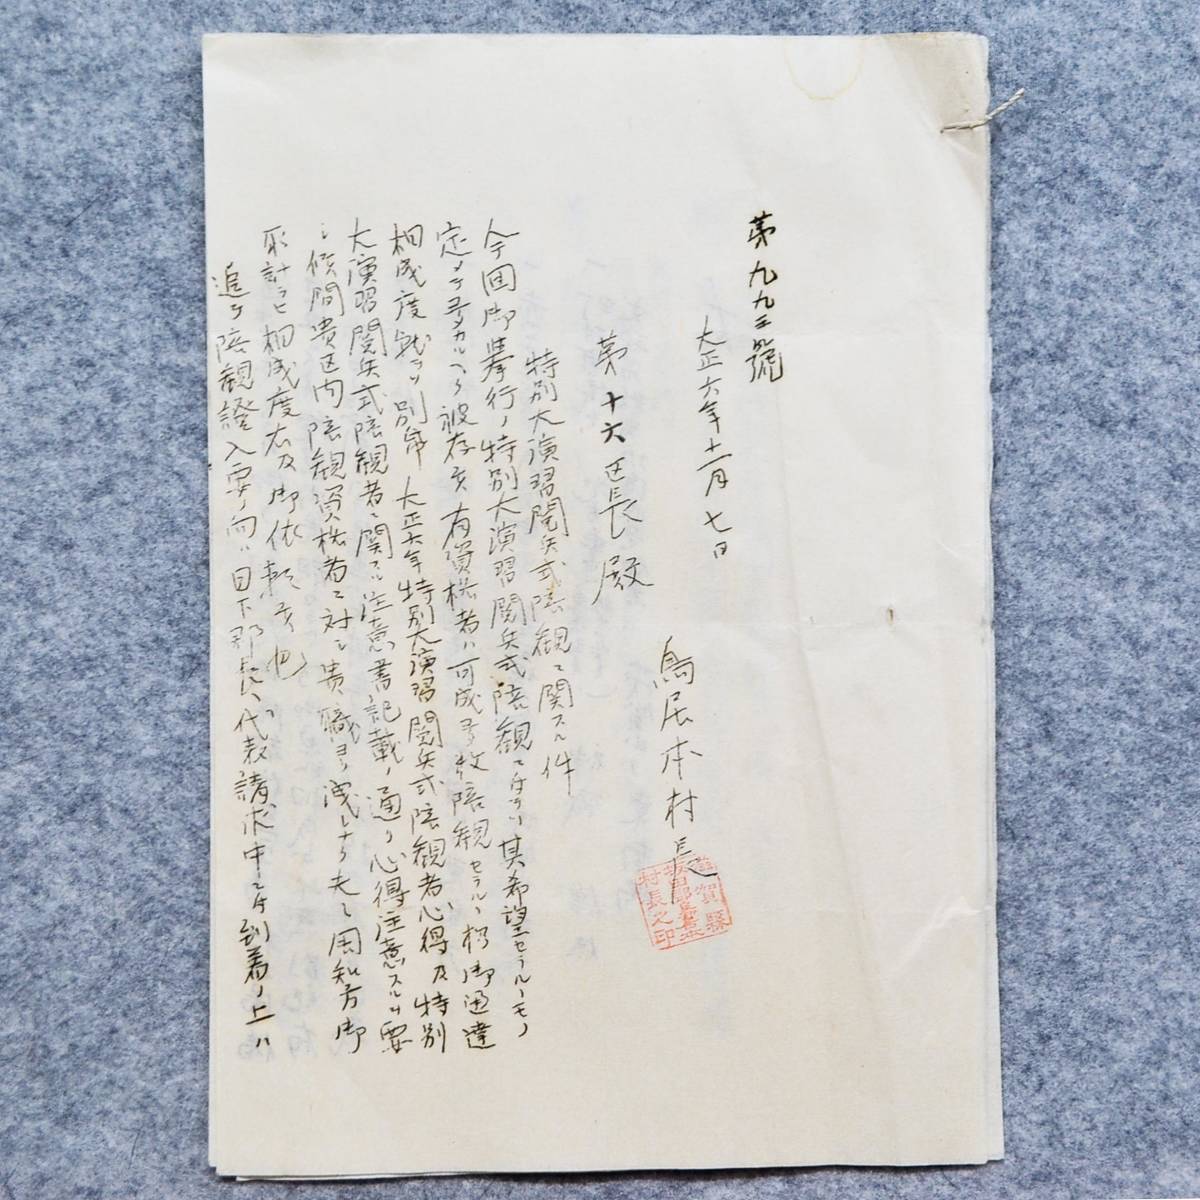 第九九三號
大正六年十一月七日
鳥居本村長
滋賀縣
坂田郡鳥居本
村長之印
第十六区長殿
特別大演習閲兵式陪観ニ関スル件
今回御挙行ノ特別大演習閲兵式陪観ニ付テハ其希望セラルヽモノ
定メテ多カルヘク被存候有資格者ハ可成多数陪観セラルヽ様御通達
相成度就テハ別紙大正六年特別大演習閲兵式陪観者心得及特別
大演習閲兵式陪観者ニ関スル注意書記載ノ通リ心得注意スルヲ要
シ候間貴区内陪観資格者ニ対シ貴職ヨリ洩レナク夫々周知方御
取計ラヒ相成度右及御依頼候也
追テ陪観證入要ノ向ハ目下郡長ヘ代表請求中ニ付到着ノ上ハ